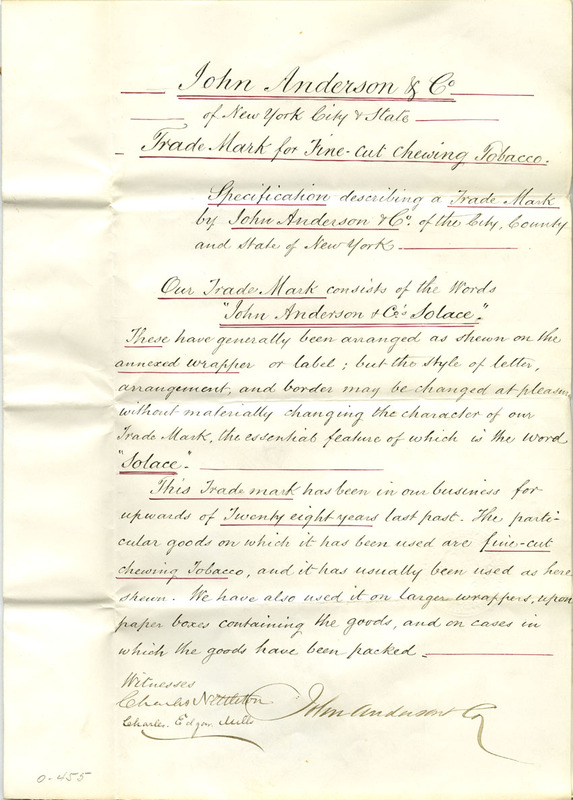 John Anderson & Co
of New York City & State
Trade Mark for Fine-cut Chewing Tobacco.
Specification describing a Trade Mark
by John Anderson & Co. of the City, County
and State of New York
Our Trade Mark consists of the Words
"John Anderson & Co's Solace".
These have generally been arranged as shewn on the
annexed wrapper or label; but the style of letter,
arrangement, and border may be changed at pleasure
without materially changing the character of our
Trade Mark, the essential feature of which is the word
"Solace".
This Trade mark has been in our business for
upwards of Twenty eight years last past. The parti-
cular goods on which it has been used are fine-cut
chewing Tobacco, and it has usually been used as here
shewn. We have also used it on larger wrappers, upon
paper boxes containing the goods, and on cases in
which the goods have been packed.
Witnesses
Charles Nettleton
Charles Edgar Mills
John Anderson & Co
0-455